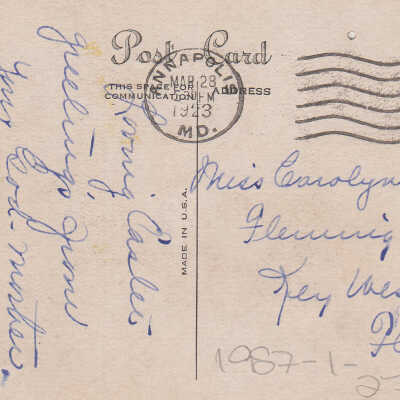 Post Card
THIS SPACE FOR
COMMUNICATION
ADDRESS
ANNAPOLIS
MAR 28
PM
1923
MD.
MADE IN U.S.A.
Loving Easter
greetings from
Your God-mother.
Miss Carolyn
Fleming
Key Wes
Fl
1987-1-
27